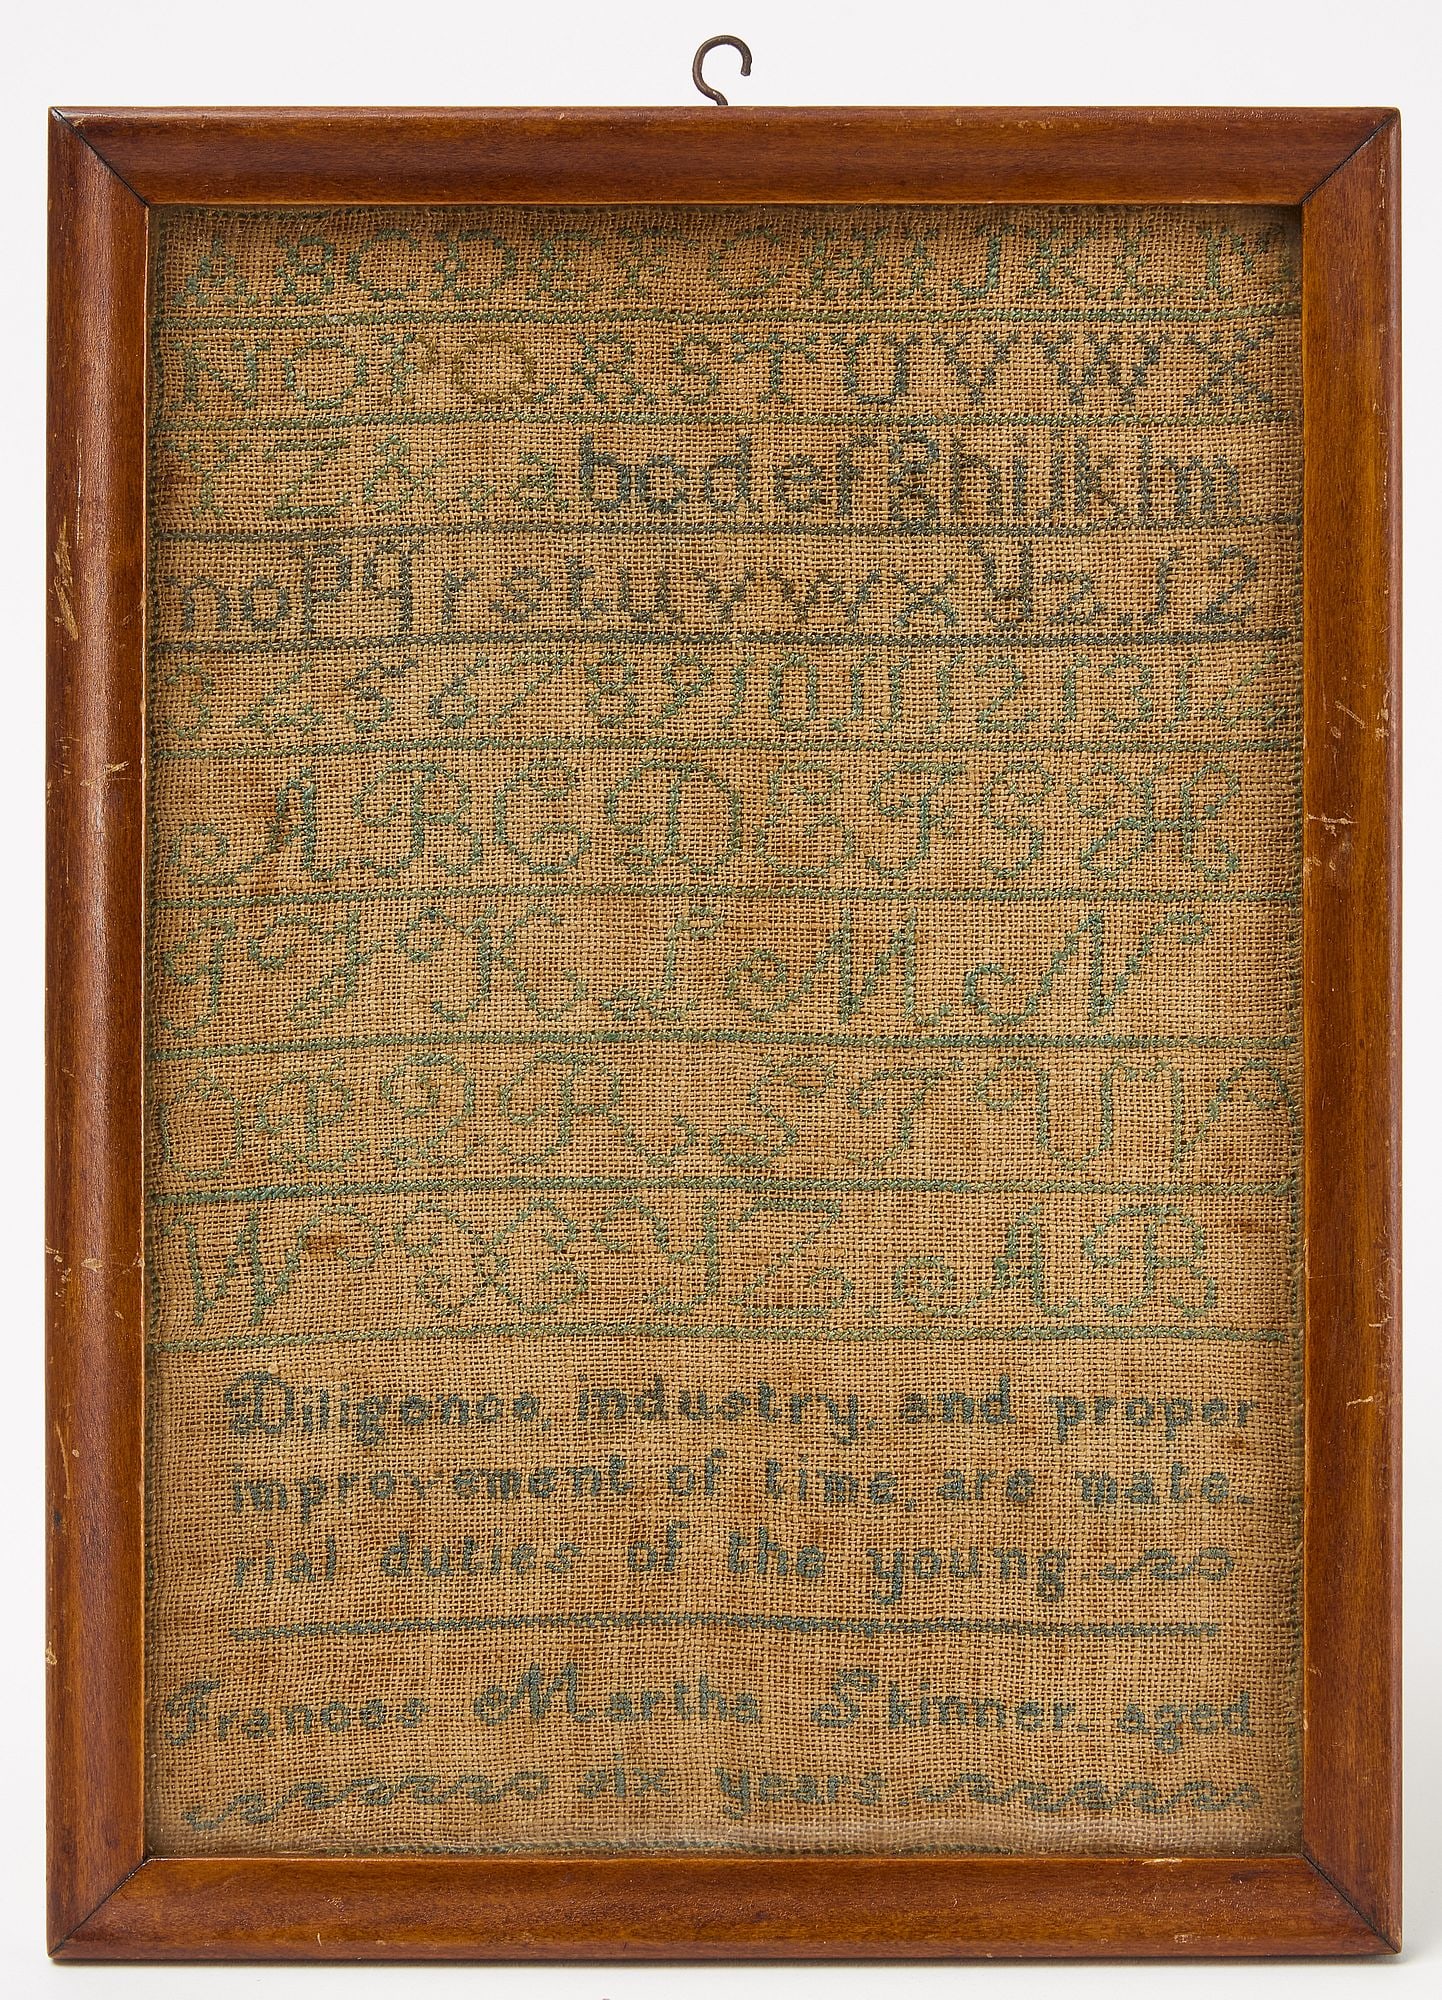 A B C D E F G H I J K L M
N O P Q R S T U V W X
Y Z & . a b c d e f g h i j k l m
n o p q r s t u v w x y z . 1 2
3 4 5 6 7 8 9 10 11 12 13 14
A B C D E F G H
I J K L M N
O P Q R S T U V
W X Y Z A B
Diligence, industry, and proper
improvement of time, are mate-
rial duties of the young.
Frances Martha Skinner. aged
six years.